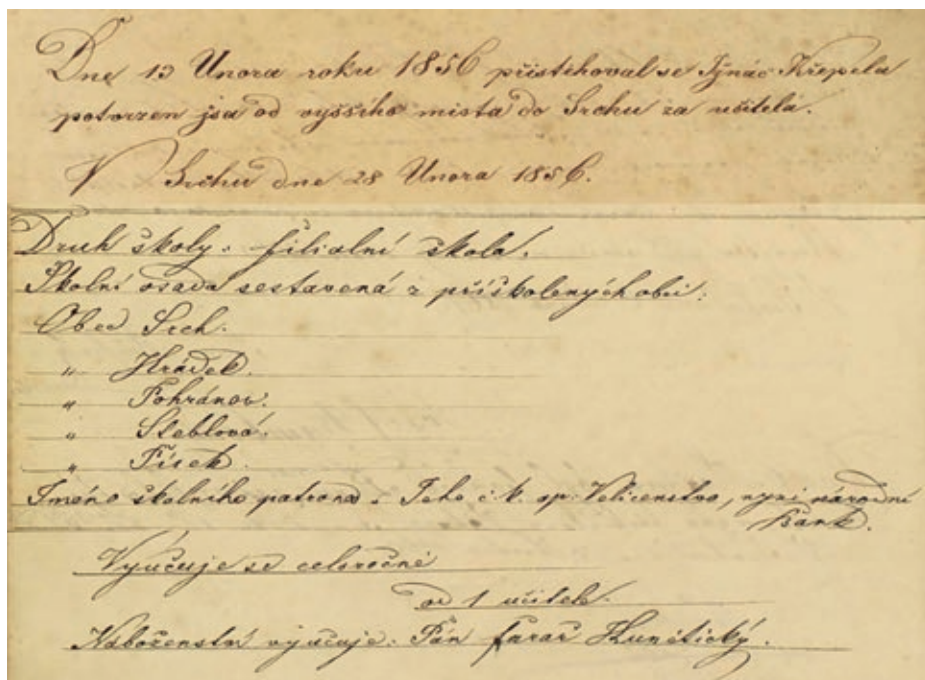 Dne 13 Unora roku 1856 přistěhoval se Ignác Křepela
potvrzen jsa od vyššího mista do Srchu za učitela.
V Srchu dne 28 Unora 1856.
Druh školy: filialní škola.
Školní osada sestavená z přiškolených obcí:
Obec Srch.
" Hrádek.
" Pohránov.
" Steblová.
" Písek.
Jméno školního patrona: Jeho c. k. ap. Veličenstvo, nyní národní
bank.
Vyučuje se celoročně
od 1 učitele.
Náboženství vyučuje: Pán farář Kunětický.